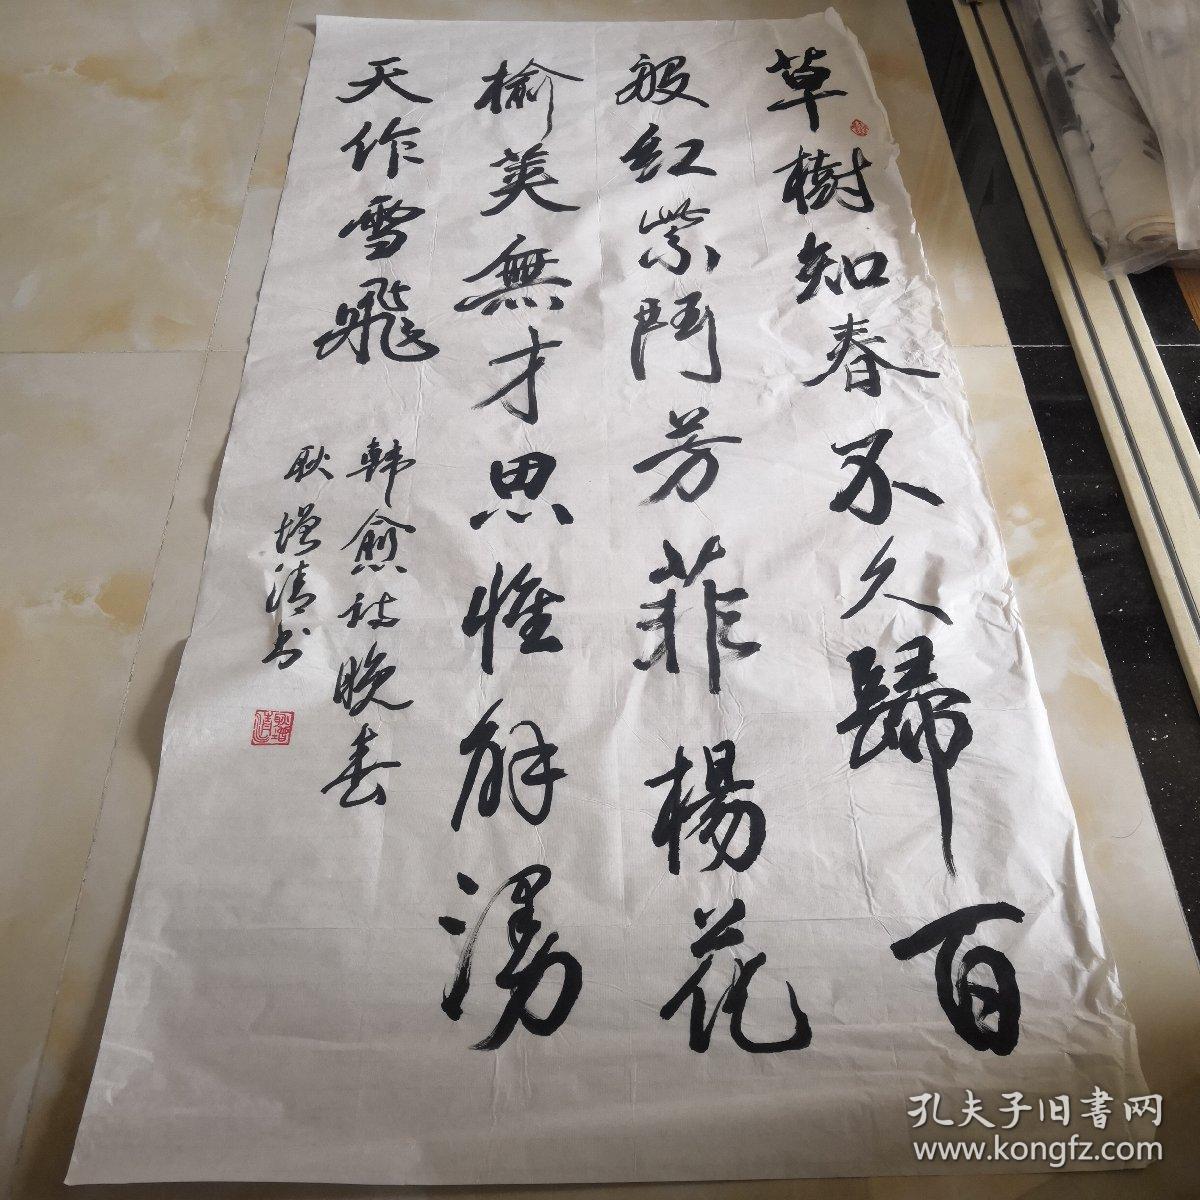 草樹知春不久歸百
般紅紫鬥芳菲楊花
榆莢無才思惟解漫
天作雪飛
韩愈诗晚春
耿增清书
孔夫子旧書网
www.kongfz.com